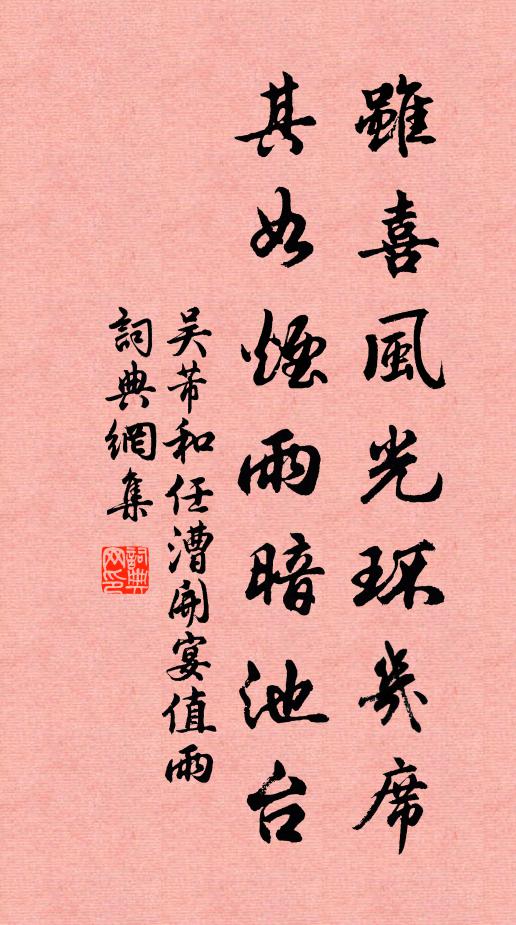 雖喜風光环幾席
其如煙雨暗池台
吴芾和任漕開宴值雨
詞典網集
詞典网印